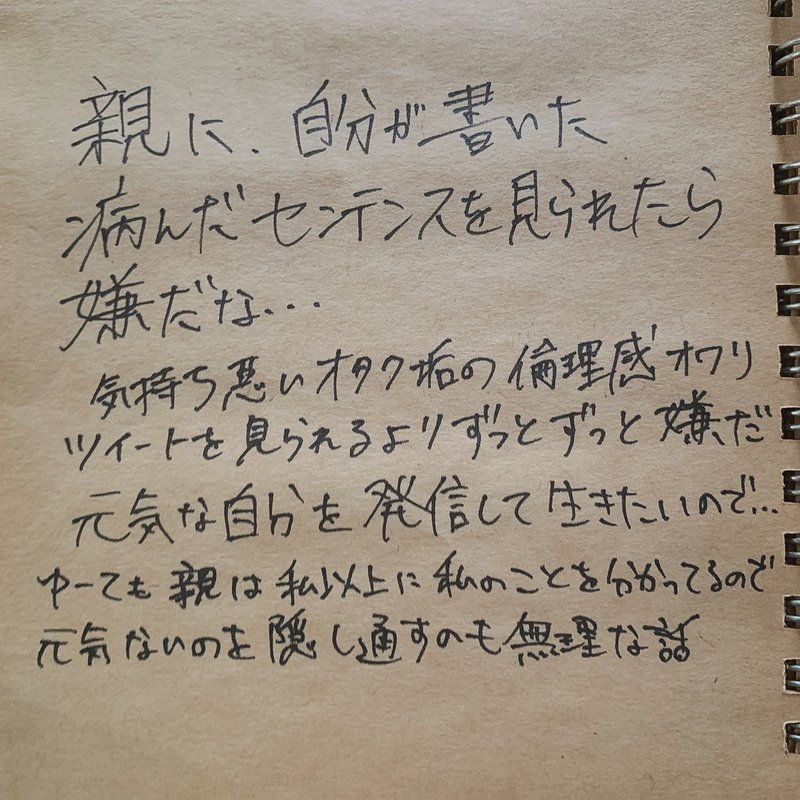 親に、自分が書いた
病んだセンテンスを見られたら
嫌だな...
気持ち悪いオタク垢の倫理感オワリ
ツイートを見られるよりずっとずっと嫌だ
元気な自分を発信して生きたいので...
ゆーても親は私以上に私のことを分かってるので
元気ないのを隠し通すのも無理な話